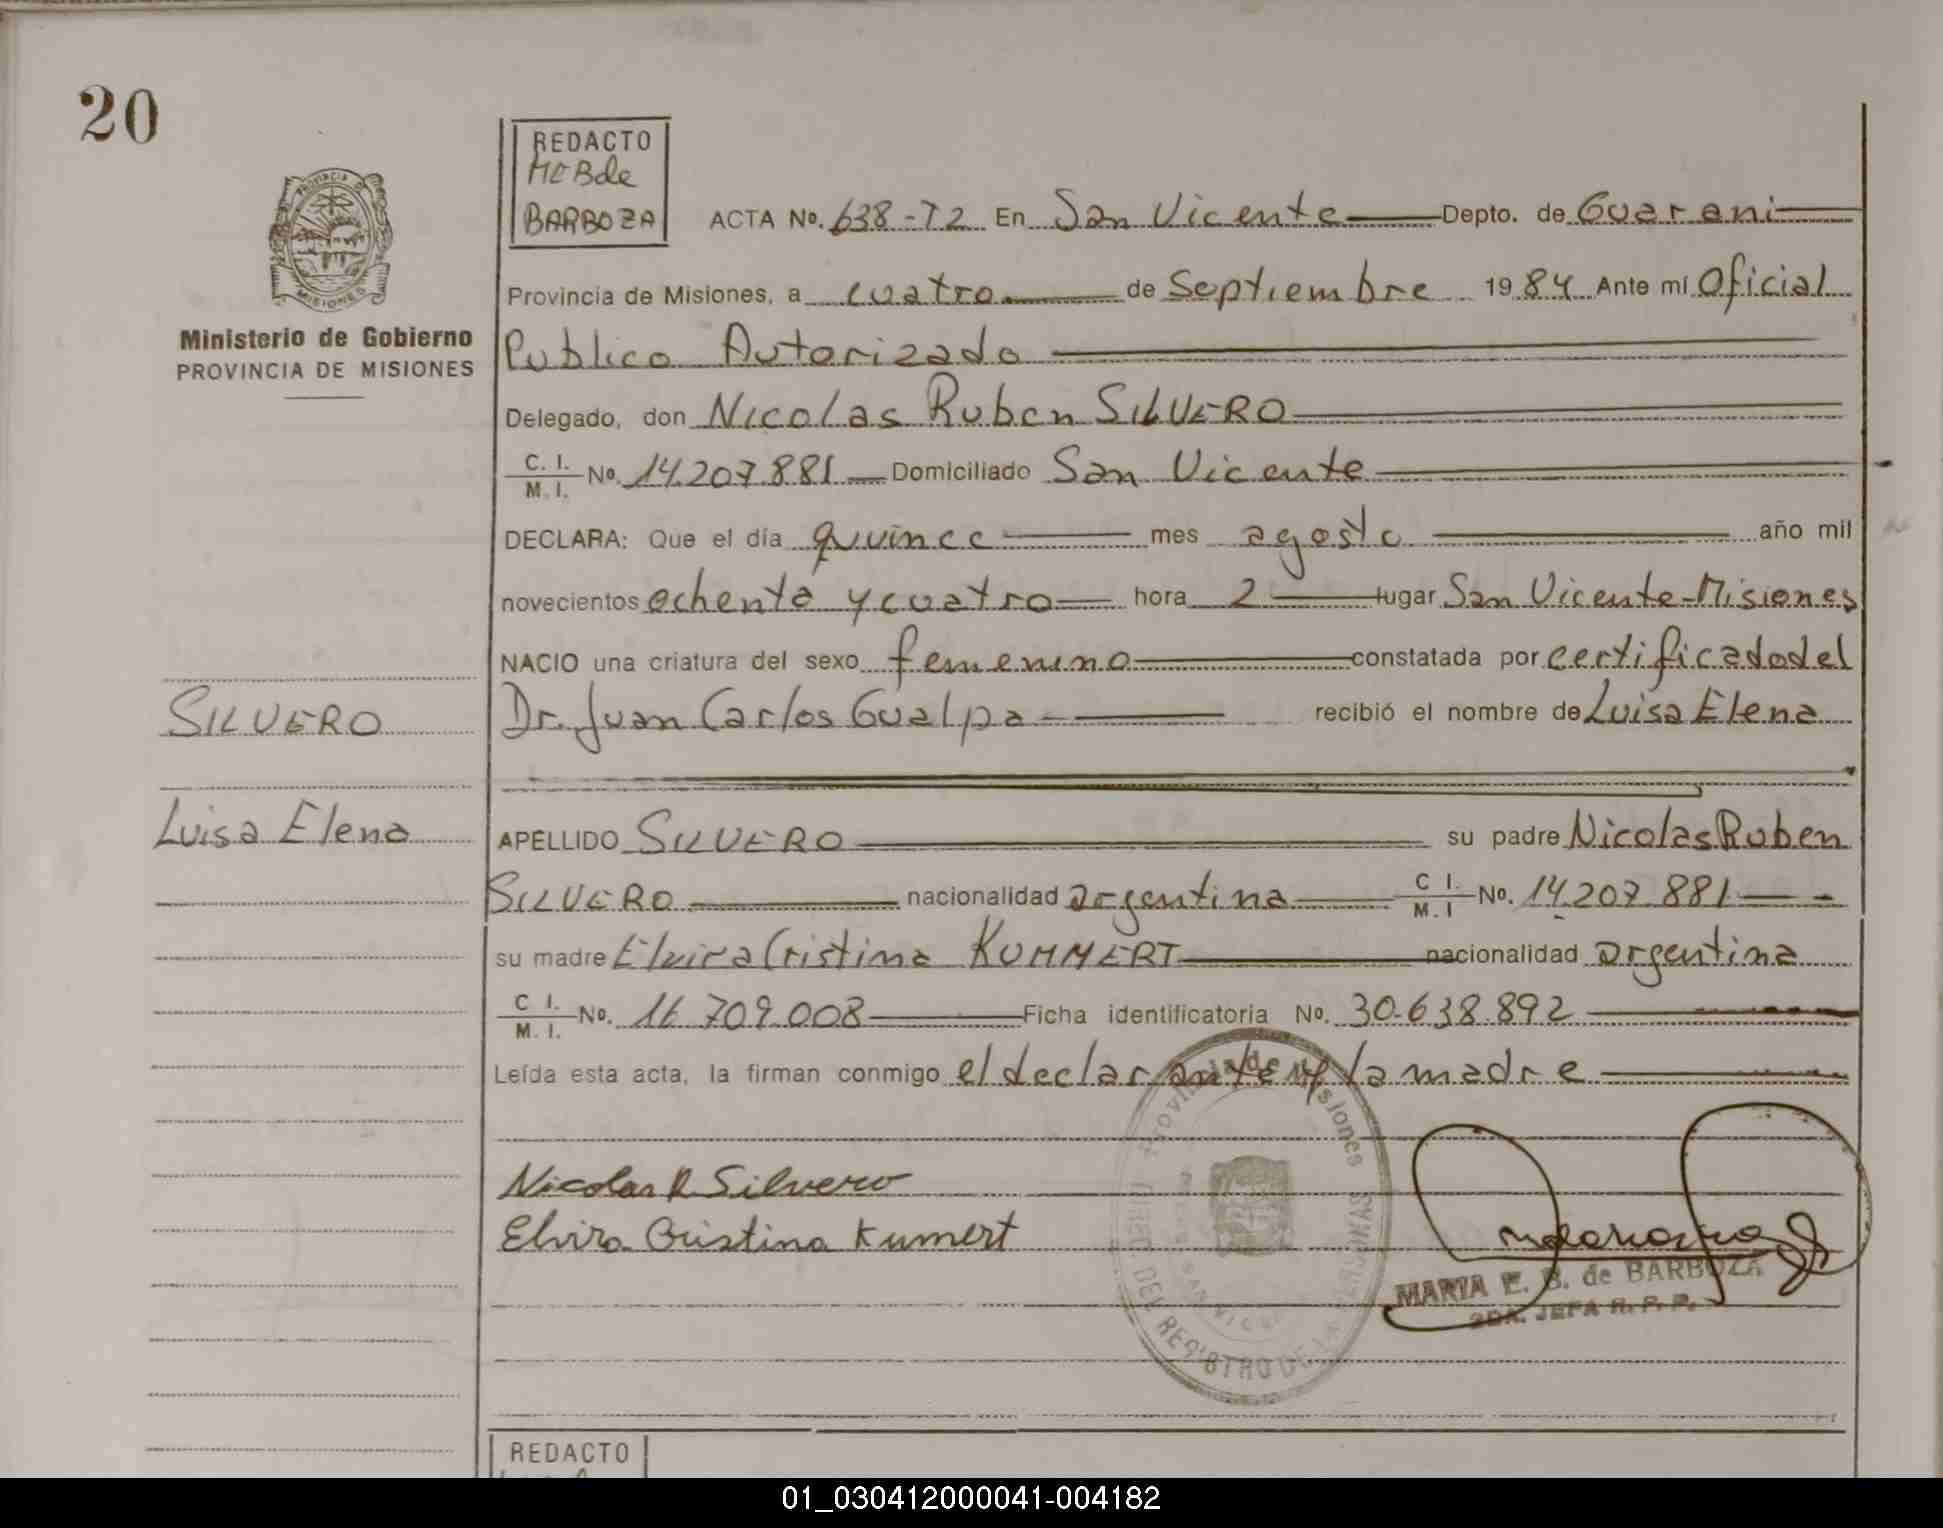 20
PROVINCIA DE
MISIONES
Ministerio de Gobierno
PROVINCIA DE MISIONES
SILVERO
Luisa Elena
REDACTO
BARBOZA
ACTA No. 638-T2 En San Vicente Depto. de Guarani
Provincia de Misiones, a cuatro de Septiembre 1984 Ante mí Oficial
Publico Autorizado
Delegado, don Nicolas Ruben SILVERO
C. I.
M. I. No. 14.207.881 Domiciliado San Vicente
DECLARA: Que el día quince mes agosto año mil
novecientos ochenta y cuatro hora 2 lugar San Vicente-Misiones
NACIO una criatura del sexo femenino constatada por certificado del
Dr. Juan Carlos Gualpa recibió el nombre de Luisa Elena
APELLIDO SILVERO su padre Nicolas Ruben
SILVERO nacionalidad argentina C I. M. I No. 14.207.881
su madre Elvira Cristina KUMMERT nacionalidad argentina
C I. M. I. No. 16.709.008 Ficha identificatoria No. 30.638.892
Leída esta acta, la firman conmigo el declarante y la madre
Nicolas R Silvero
Elvira Cristina Kumert
Provincia de Misiones
DEL REGISTRO DE LAS PERSONAS
MARIA E. B. de BARBOZA
2DA. JEFA R. P. P.
REDACTO
01_030412000041-004182